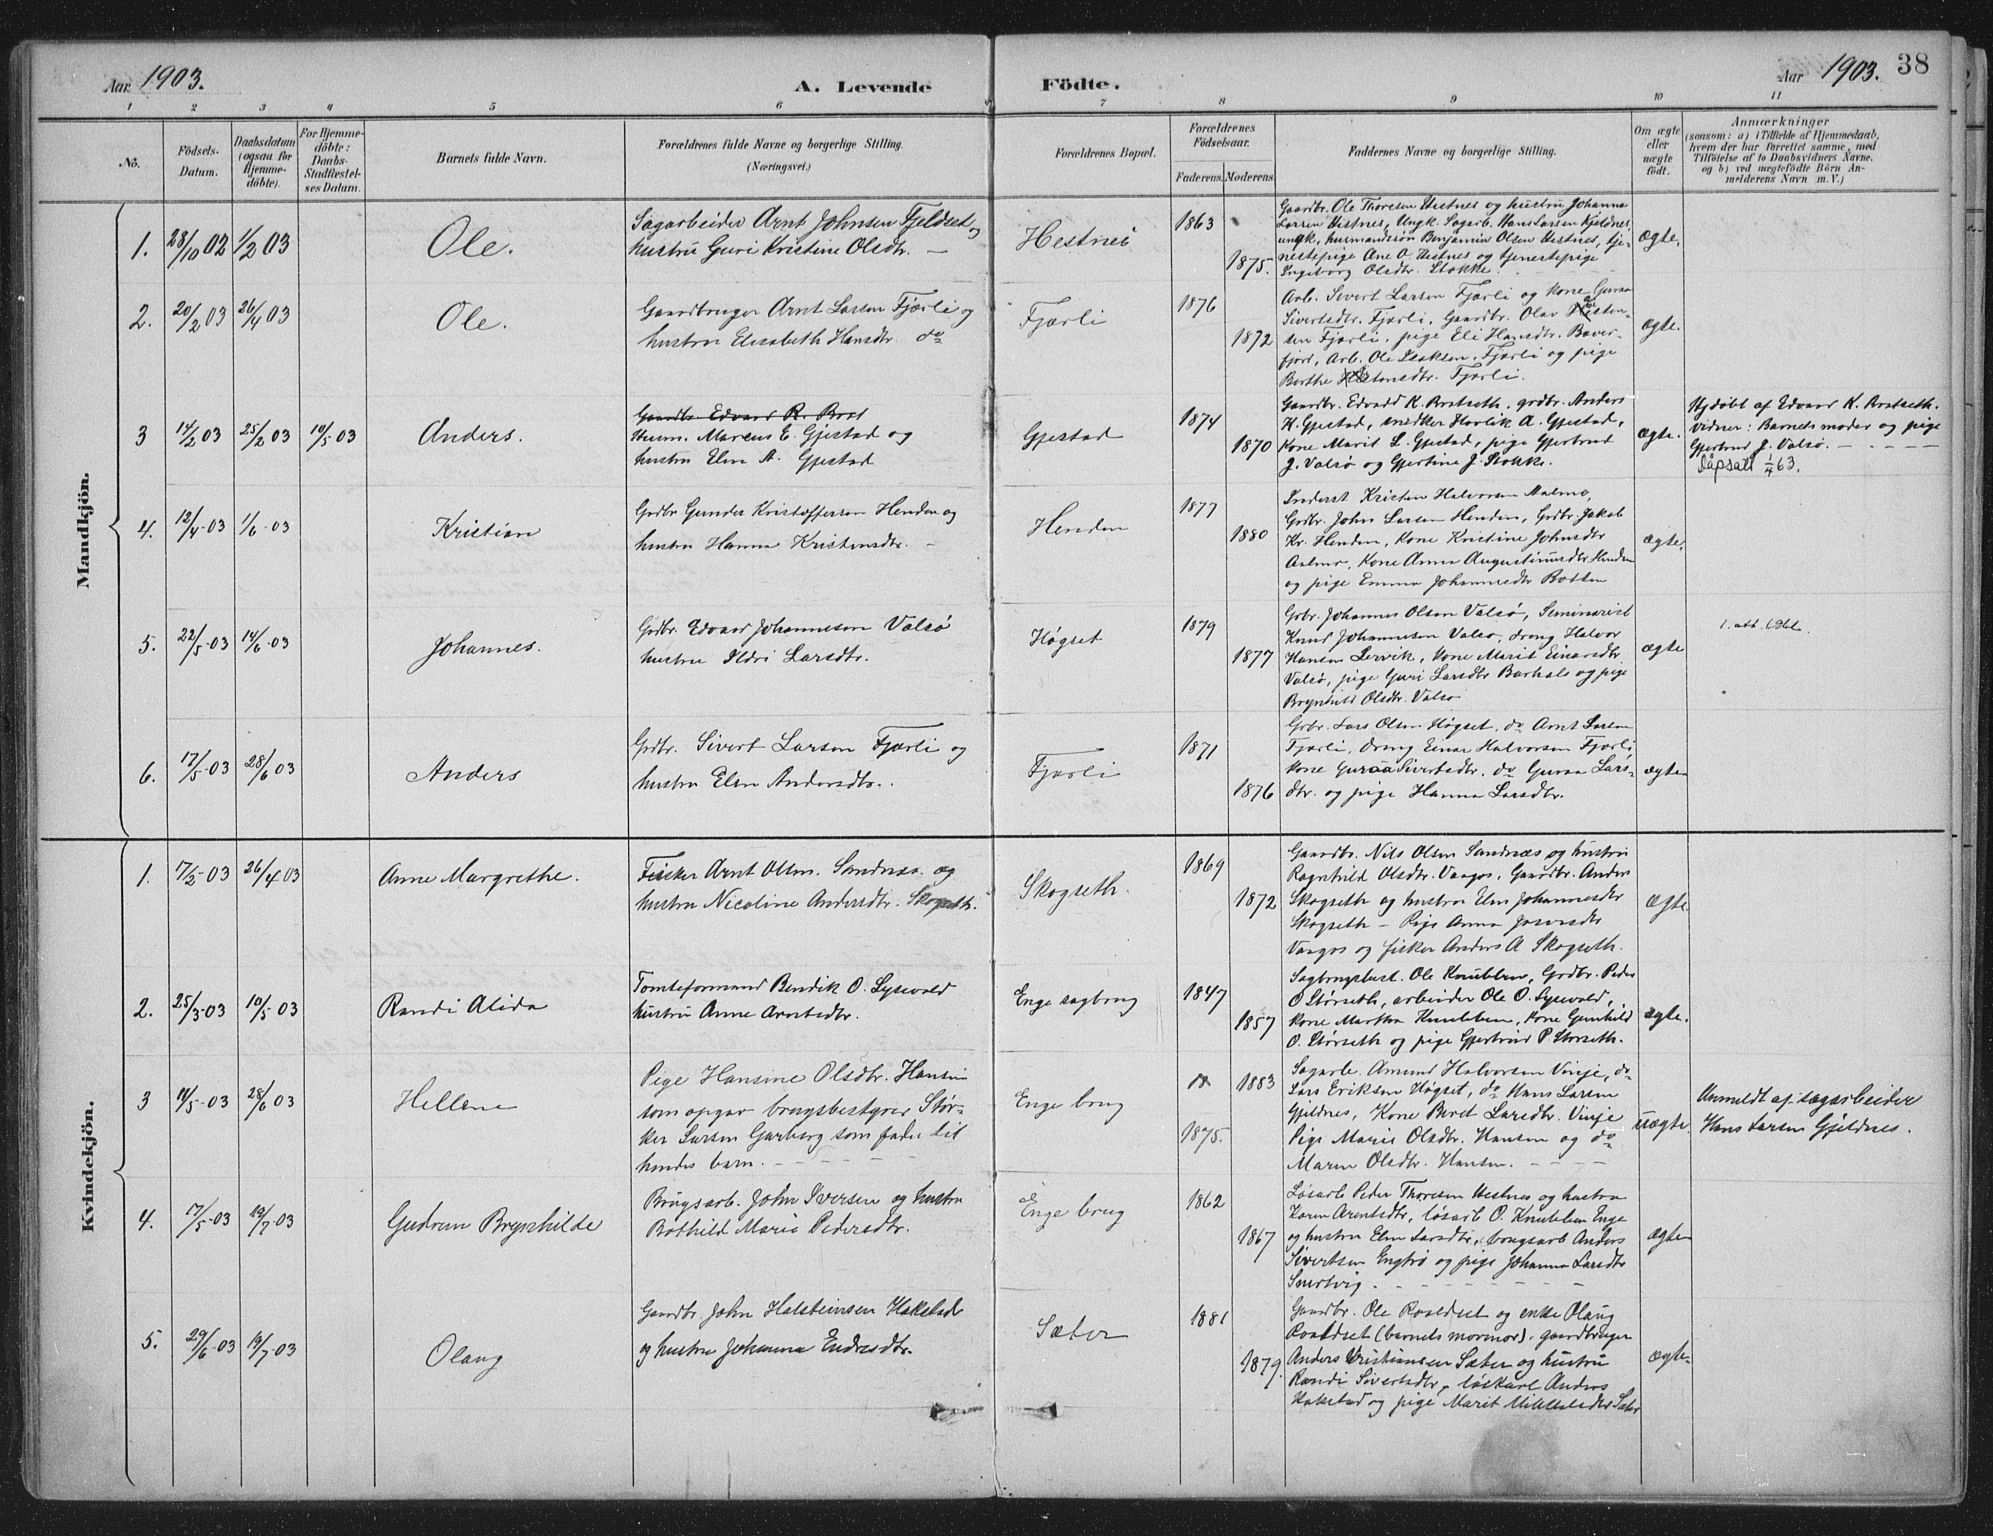 Aar 1903.
A. Levende Födte.
Aar 1903. 38
1 2 3 4 5 6 7 8 9 10 11
No.
Födsels-
Datum.
Daabsdatum
(ogsaa for
Hjemme-
döbte).
For Hjemme-
döbte:
Daabs-
Stadfæstel-
ses Datum.
Barnets fulde Navn.
Forældrenes fulde Navne og borgerlige Stilling.
(Næringsvei.)
Forældrenes Bopæl.
Forældrenes
Födselsaar.
Faderens. Moderens.
Faddernes Navne og borgerlige Stilling.
Om ægte
eller
uægte
födt.
Anmærkninger
(saasom: a) i Tilfælde af Hjemmedaab,
hvem der har forrettet samme, med
Tilföielse af to Daabsvidners Navne,
og b) ved uægtefödte Börn An-
melderens Navn m. V.)
Mandkjön.
1. 28/10 02 1/2 03 Ole.
Sagarbeider Arnt Johnsen Fjeldset og
hustru Guri Kristine Olsdtr. —
Hestnes
1863
1875.
Gaardbr. Ole Thoresen Hestnes og hustru Johanna
Larsen Hestnes, Ungk. Sagarb. Hans Larsen Gjeldnes,
ungk, husmandssøn Benjamin Olsen Hestnes, tje-
nestepige Ane O. Hestnes og tjenestepige
Ingeborg Olsdtr. Stokke.
ægte.
2. 20/2 03 26/4 03 Ole.
Gaardbruger Arnt Larsen Fjærli og
hustru Elisabeth Hansdtr. do
Fjærli
1876
1872
Arb. Sivert Larsen Fjærli og kone Guraa
Sivertsdtr. Fjærli, Gaardbr. Olav
sen Fjærli, pige Eli Hansdtr. Bæver-
fjord, Arb. Ole Isaksen Fjærli og pige
Berthe Fjærli.
ægte.
3 14/2 03 25/2 03 10/5 03 Anders.
Gaardbr. Edvard K. Bret
Husm. Marcus E. Gjestad og
hustru Elen A. Gjestad
Gjestad
1874
1870
Gaardbr. Edvard K. Bratseth, grdbr. Anders
H. Gjestad, snedker Havlik A. Gjestad,
Kone Marit L. Gjestad, pige Gjertrud
J. Valsø og Gjertine J. Stokke.
ægte.
Hjdøbt af Edvar K. Bratseth.
vidner: Barnets moder og pige
Gjertrud J. Valsø.
Dåpsatt 1/4 63.
4. 12/4-03 1/6-03 Kristian
Grdbr Gunder Kristoffersen Henden og
hustru Hanna Kristensdtr. —
Henden
1877
1880
Inderst Kristen Halvorsen Aalmo,
Grdbr. John Larsen Henden, Grdbr. Jakob
Kr. Henden, Kone Kristine Johnsdtr
Aalmo, Kone Anna Augustinusdtr Henden
og pige Emma Johannesdtr Botten
ægte.
5. 22/5-03 14/6-03 Johannes.
Grdbr. Edvard Johannesen Valsø
hustru Ildri Larsdtr.
Høgset
1879
1877
Grbr. Johannes Olsen Valsø, Seminarist
Knud Johannesen Valsø, dreng Halvor
Hansen Lervik, kone Marit Einarsdtr.
Valsø, pige Guri Larsdtr Barhals og pige
Brynhild Olsdtr. Valsø
ægte
1. att.
6. 17/5-03 28/6 03 Anders
Grdbr. Sivert Larsen Fjærli og
hustru Elen Andersdtr.
Fjærli
1871
1876
Grbr. Lars Olsen Høgset, do Arnt Larsen
Fjærli, dreng Einar Halvorsen Fjærli
kone Guraa Sivertsdtr. do Guraa Lars-
dtr. og pige Hanna Larsdtr.
ægte
Kvindekjön.
1. 17/2-03 26/4 03 Anne Margrethe.
Fisker Arnt Olsen. Sandnæs. og
hustru Nicoline Andersdtr. Skogseth.
Skogseth.
1869
1872
Gaardbr. Nils Olsen Sandnæs og hustru
Ragnhild Olsdtr. Vaagos, Gaardbr. Anders
Skogseth og hustru Elen Johannesdtr
Skogseth — Pige Anna
Vaagos og fisker Anders A Skogseth.
ægte.
2. 25/3-03 10/5 03 Randi Alida
Tomteformand Bendik O. Syevold
hustru Anne Arntsdtr.
Enge sagbrug
1847
1857
Sagbrugsbest. Ole Knubben, Grdbr. Peder
O Størseth, arbeider Ole O. Syevold,
kone Martha Knubben, Kone Gunhild
O. Størseth og pige Gjertrud P Størseth.
ægte.
3 11/5-03 28/6 03 Hellene
Pige Hansine Olsdtr. Hansen
som opgav brugsbestyrer Stør-
ker Larsen Garberg som fader til
hendes barn. — — —
Enge brug
1883
1875.
Sagarb. Amund Halvorsen Vinje, do
Lars Eriksen Høgset, do Hans Larsen
Gjeldnes, Kone Beret Larsdtr. Vinje
Pige Marie Olsdtr. Hansen og do
Maren Olsdtr. Hansen. — — —
uægte.
Anmeldt af sagarbeider
Hans Larsen Gjeldnes.
4. 17/5-03 19/7-03 Gudrun Brynhilde
Brugsarb. John Iversen og hustru
Bothild Marie Pedersdtr.
Enge brug
1862
1867
Løsarb Peder Thoresen Hestnes og hustru
Karen Arentsdtr, løsarb O. Knubben Enge
og hustru Elen Larsdtr, brugsarb Anders
Sivertsen Engtrø og pige Johanna Larsdtr
ægte
5. 29/6-03 19/7-03 Olaug
Gaardbr. John Halsteinsen Hakstad
og hustru Johanna Endresdtr.
Sæter
1881
1879.
Gaardbr. Ole Roaldset og enke Olaug
Roaldset (barnets mormor), gaardbruger
Anders Kristiansen Sæter og hustru
Randi Sivertsdtr, løskarl Anders
Hakstad og pige Marit Mikkelsdtr Sæter
ægte